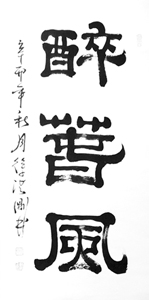 醉春風
辛卯年秋月